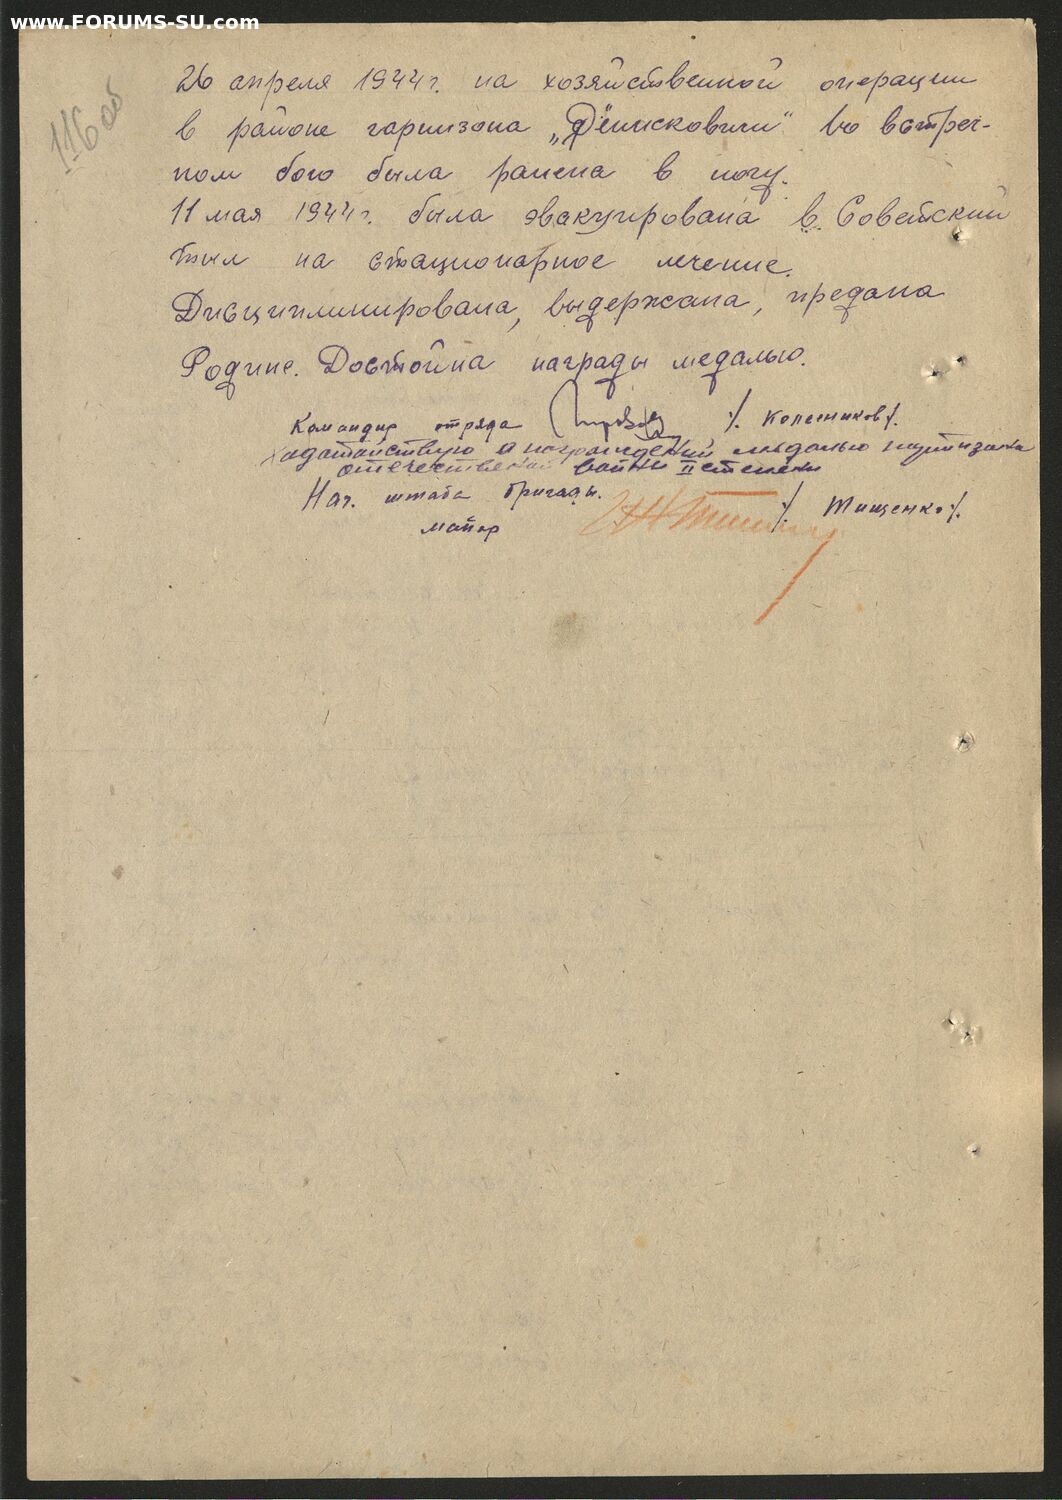 www.FORUMS-SU.com
116 об
26 апреля 1944 г. на хозяйственной операции
в районе гарнизона „Денисковичи" во встреч-
ном бою была ранена в ногу.
11 мая 1944 г. была эвакуирована в. Советский
тыл на стационарное лечение.
Дисциплинирована, выдержана, предана
Родине. Достойна награды медалью.
Командир отряда /. Колесников /.
Ходатайствую о награждений медалью партизана
отечественной войны II степени
Нач. штаба бригады.
майор /. Тищенко /.